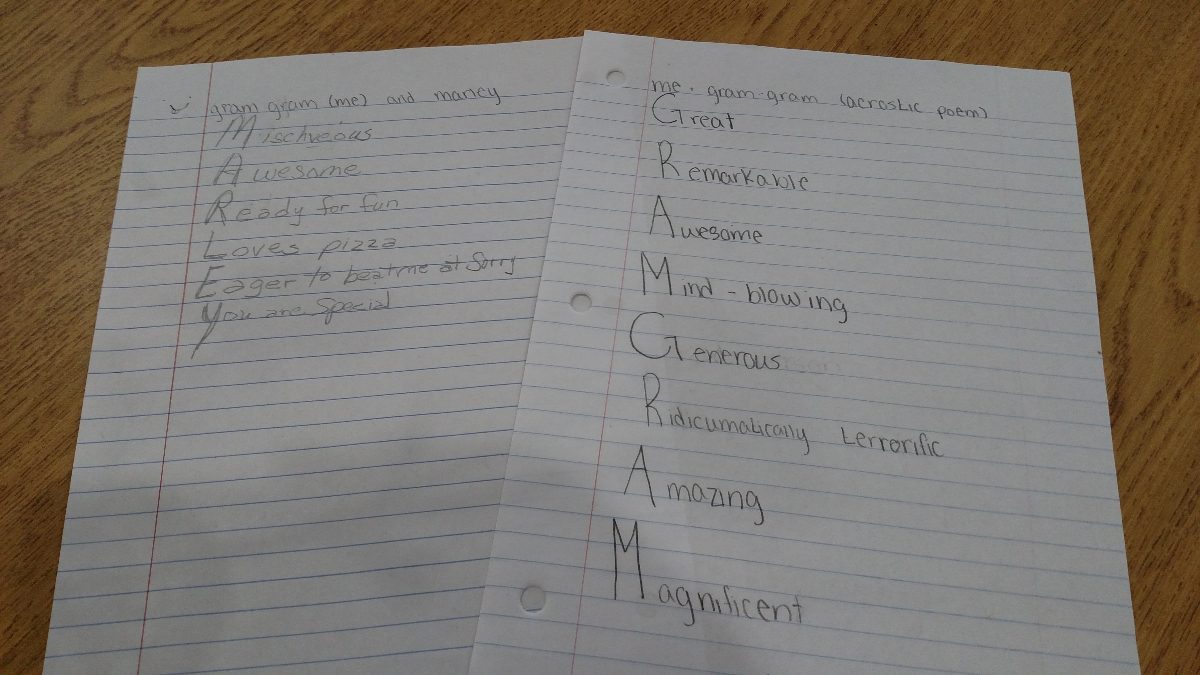 gram gram (me) and marley
Mischveous
Awesome
Ready for fun
Loves pizza
Eager to beat me at Sorry
You are special
me. gram-gram (acrostic poem)
Great
Remarkable
Awesome
Mind-blowing
Generous
Ridicumatically terrorific
Amazing
Magnificent